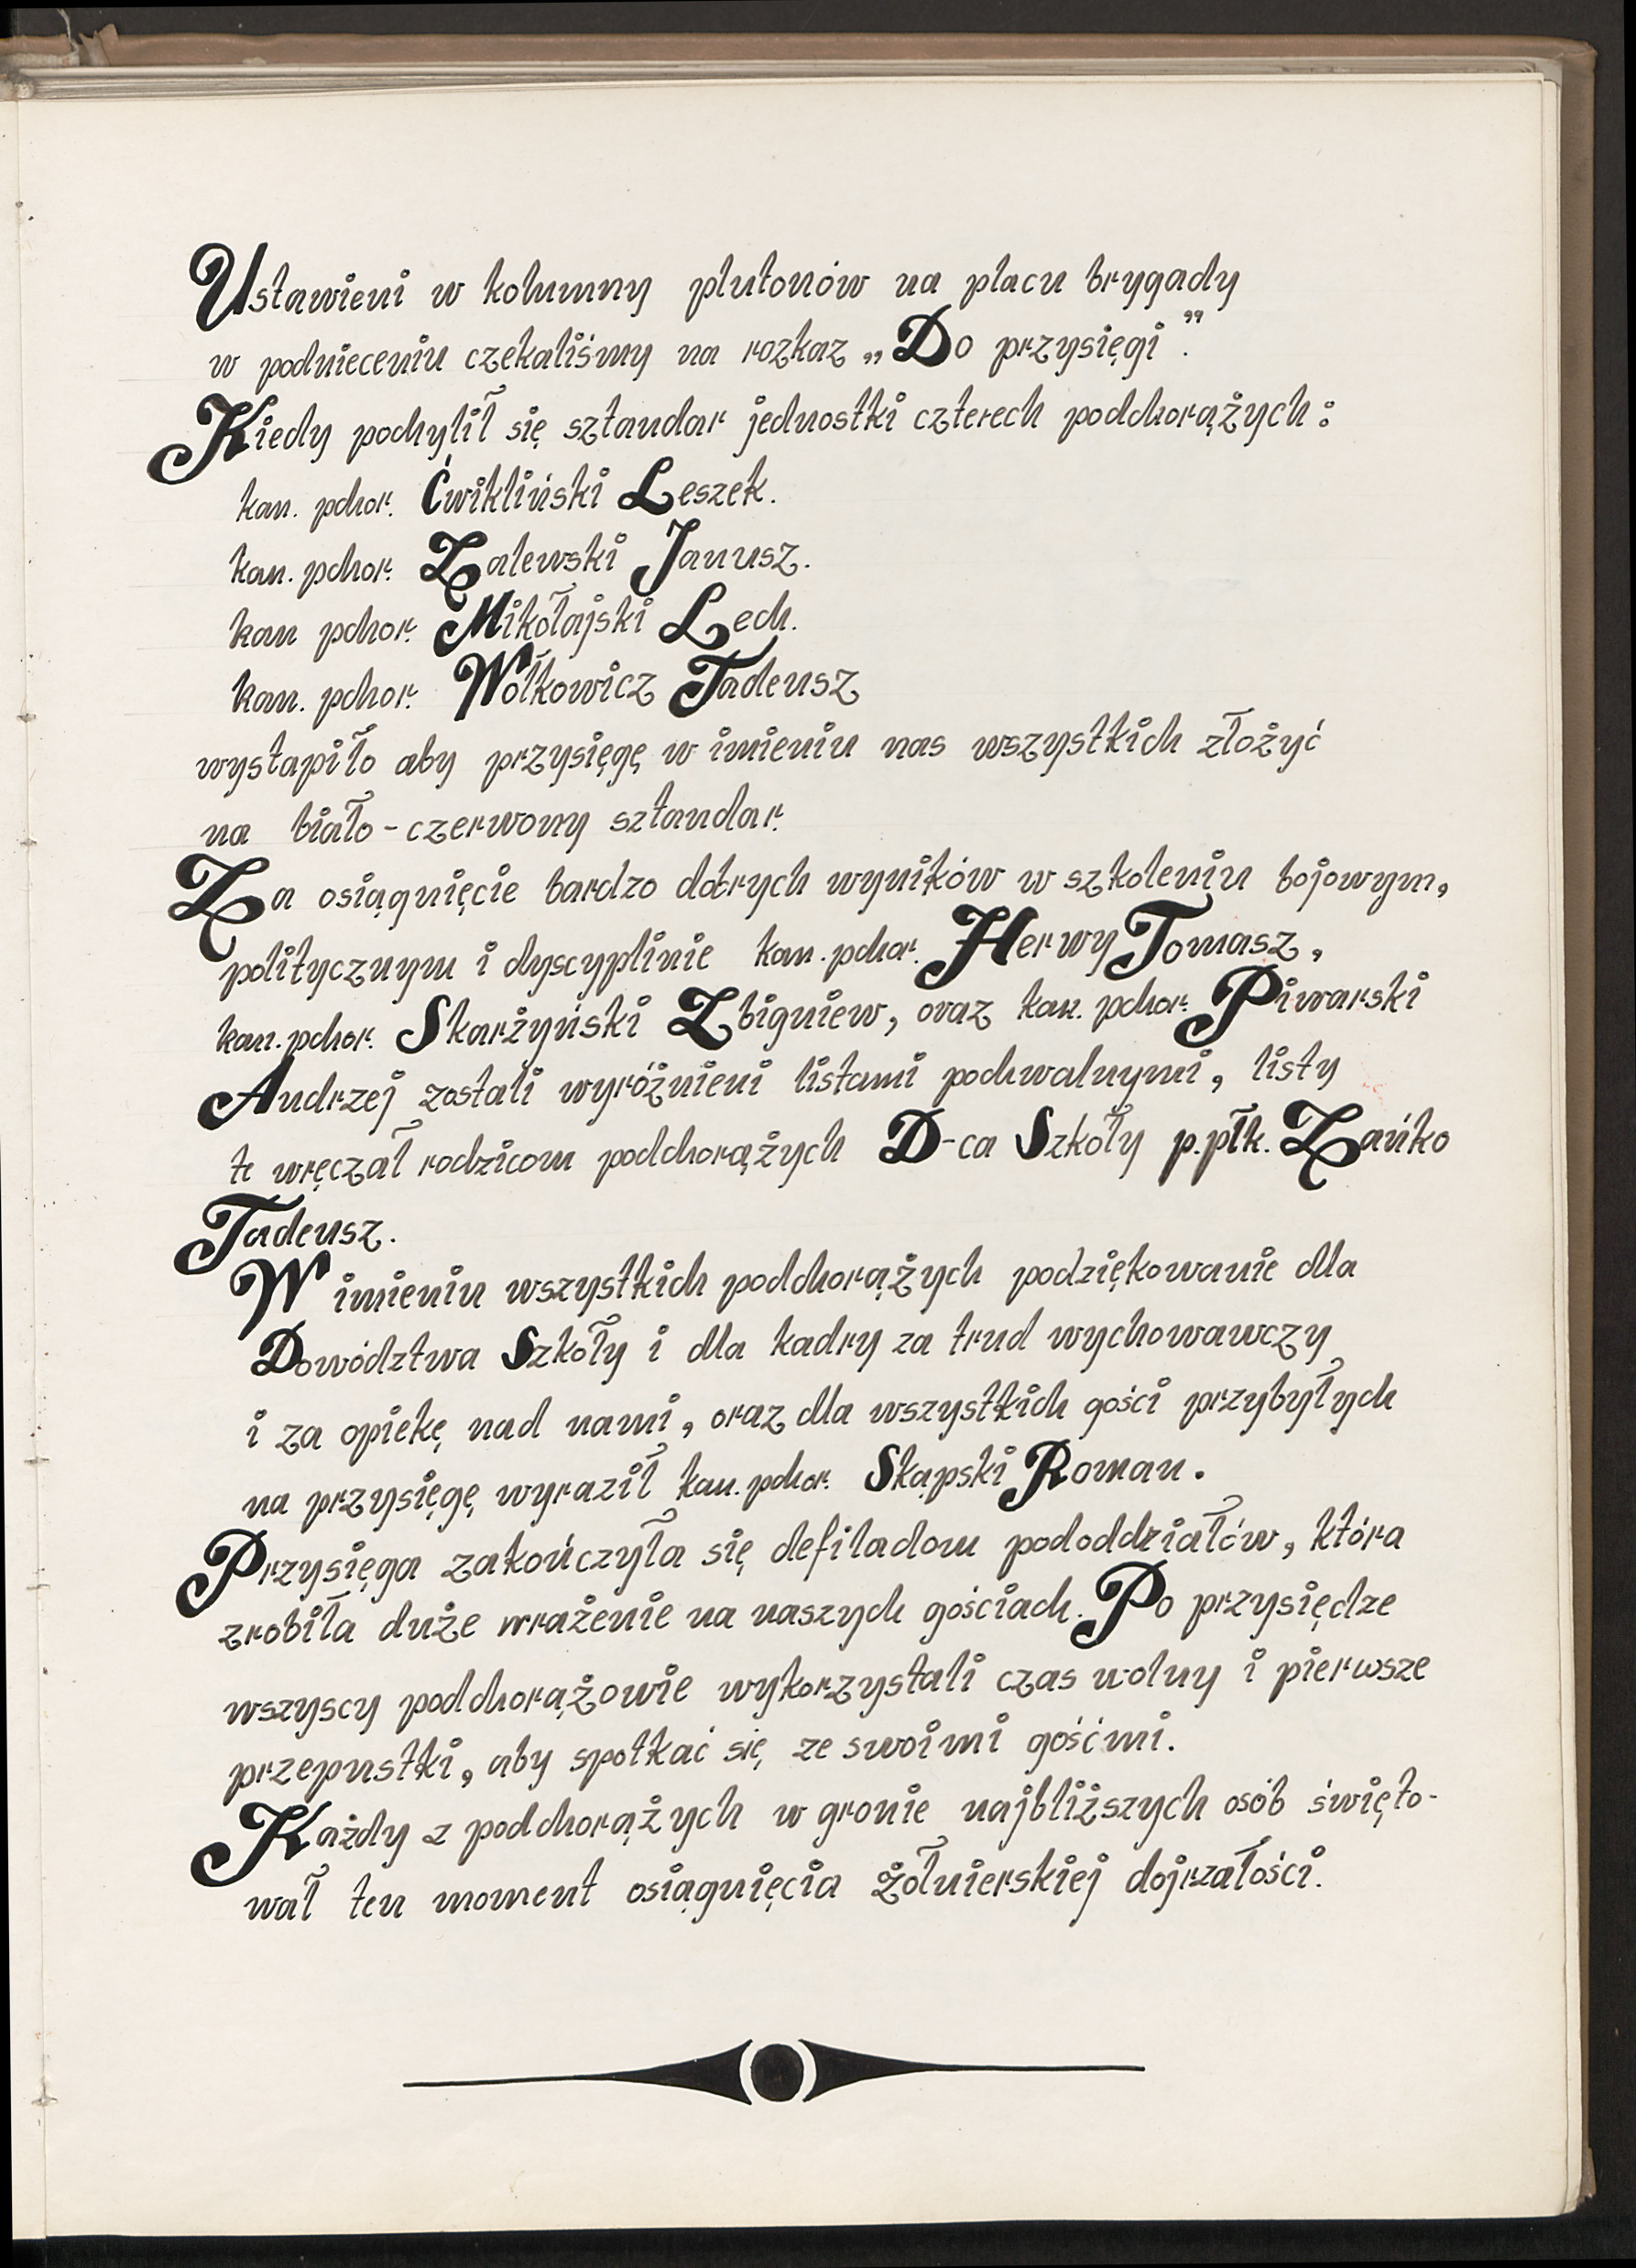 Ustawieni w kolumny plutonów na placu brygady
w podnieceniu czekaliśmy na rozkaz „Do przysięgi”.
Kiedy pochylił się sztandar jednostki czterech podchorążych:
kan. pchor. Ćwikliński Leszek.
kan. pchor. Zalewski Janusz.
kan pchor. Mikołajski Lech.
kan. pchor. Wołkowicz Tadeusz
wystąpiło aby przysięgę w imieniu nas wszystkich złożyć
na biało-czerwony sztandar.
Za osiągnięcie bardzo dobrych wyników w szkoleniu bojowym,
politycznym i dyscyplinie kan. pchor. Herwy Tomasz,
kan. pchor. Skarżyński Zbigniew, oraz kan. pchor. Piwarski
Andrzej zostali wyróżnieni listami pochwalnymi, listy
te wręczał rodzicom podchorążych D-ca Szkoły p.płk. Zańko
Tadeusz.
W imieniu wszystkich podchorążych podziękowanie dla
Dowództwa Szkoły i dla kadry za trud wychowawczy
i za opiekę nad nami, oraz dla wszystkich gości przybyłych
na przysięgę wyraził kan. pchor. Skąpski Roman.
Przysięga zakończyła się defiladom pododdziałów, która
zrobiła duże wrażenie na naszych gościach. Po przysiędze
wszyscy podchorążowie wykorzystali czas wolny i pierwsze
przepustki, aby spotkać się ze swoimi gośćmi.
Każdy z podchorążych w gronie najbliższych osób święto-
wał ten moment osiągnięcia żołnierskiej dojrzałości.